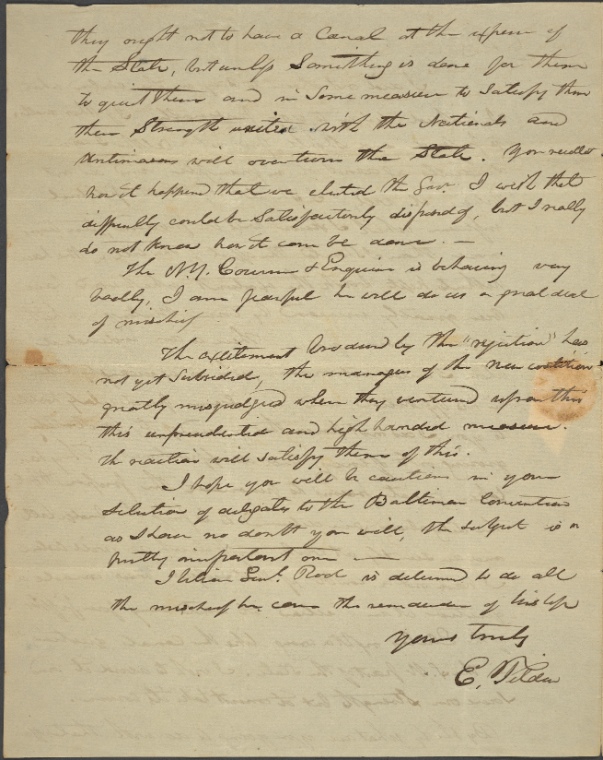 they ought not to have a Canal at the expense of
the State, but unless Something is done for them
to quiet them and in Some measure to Satisfy them
their Strength united with the Nationals and
Antimasons will overturn the State. You recollect
how it happened that we elected the Gov. I wish that
difficulty could be Satisfactorily disposed of, but I really
do not know how it can be done. —
The N.Y. Courier & Enquirer is behaving very
badly, I am fearful he will do us a great deal
of mischief
The excitement produced by the "rejection" has
not yet Subsided, the managers of the new coalition
greatly misjudged when they ventured upon this
this unprecedented and high handed measure.
The reaction will satisfy them of this.
I hope you will be cautious in your
Selection of delegates to the Baltimore Convention
as I have no doubt you will, the subject is a
pretty important one —
I believe Genl. Root is determined to do all
the mischief he can the remainder of his life
Yours truly
E. Tilden